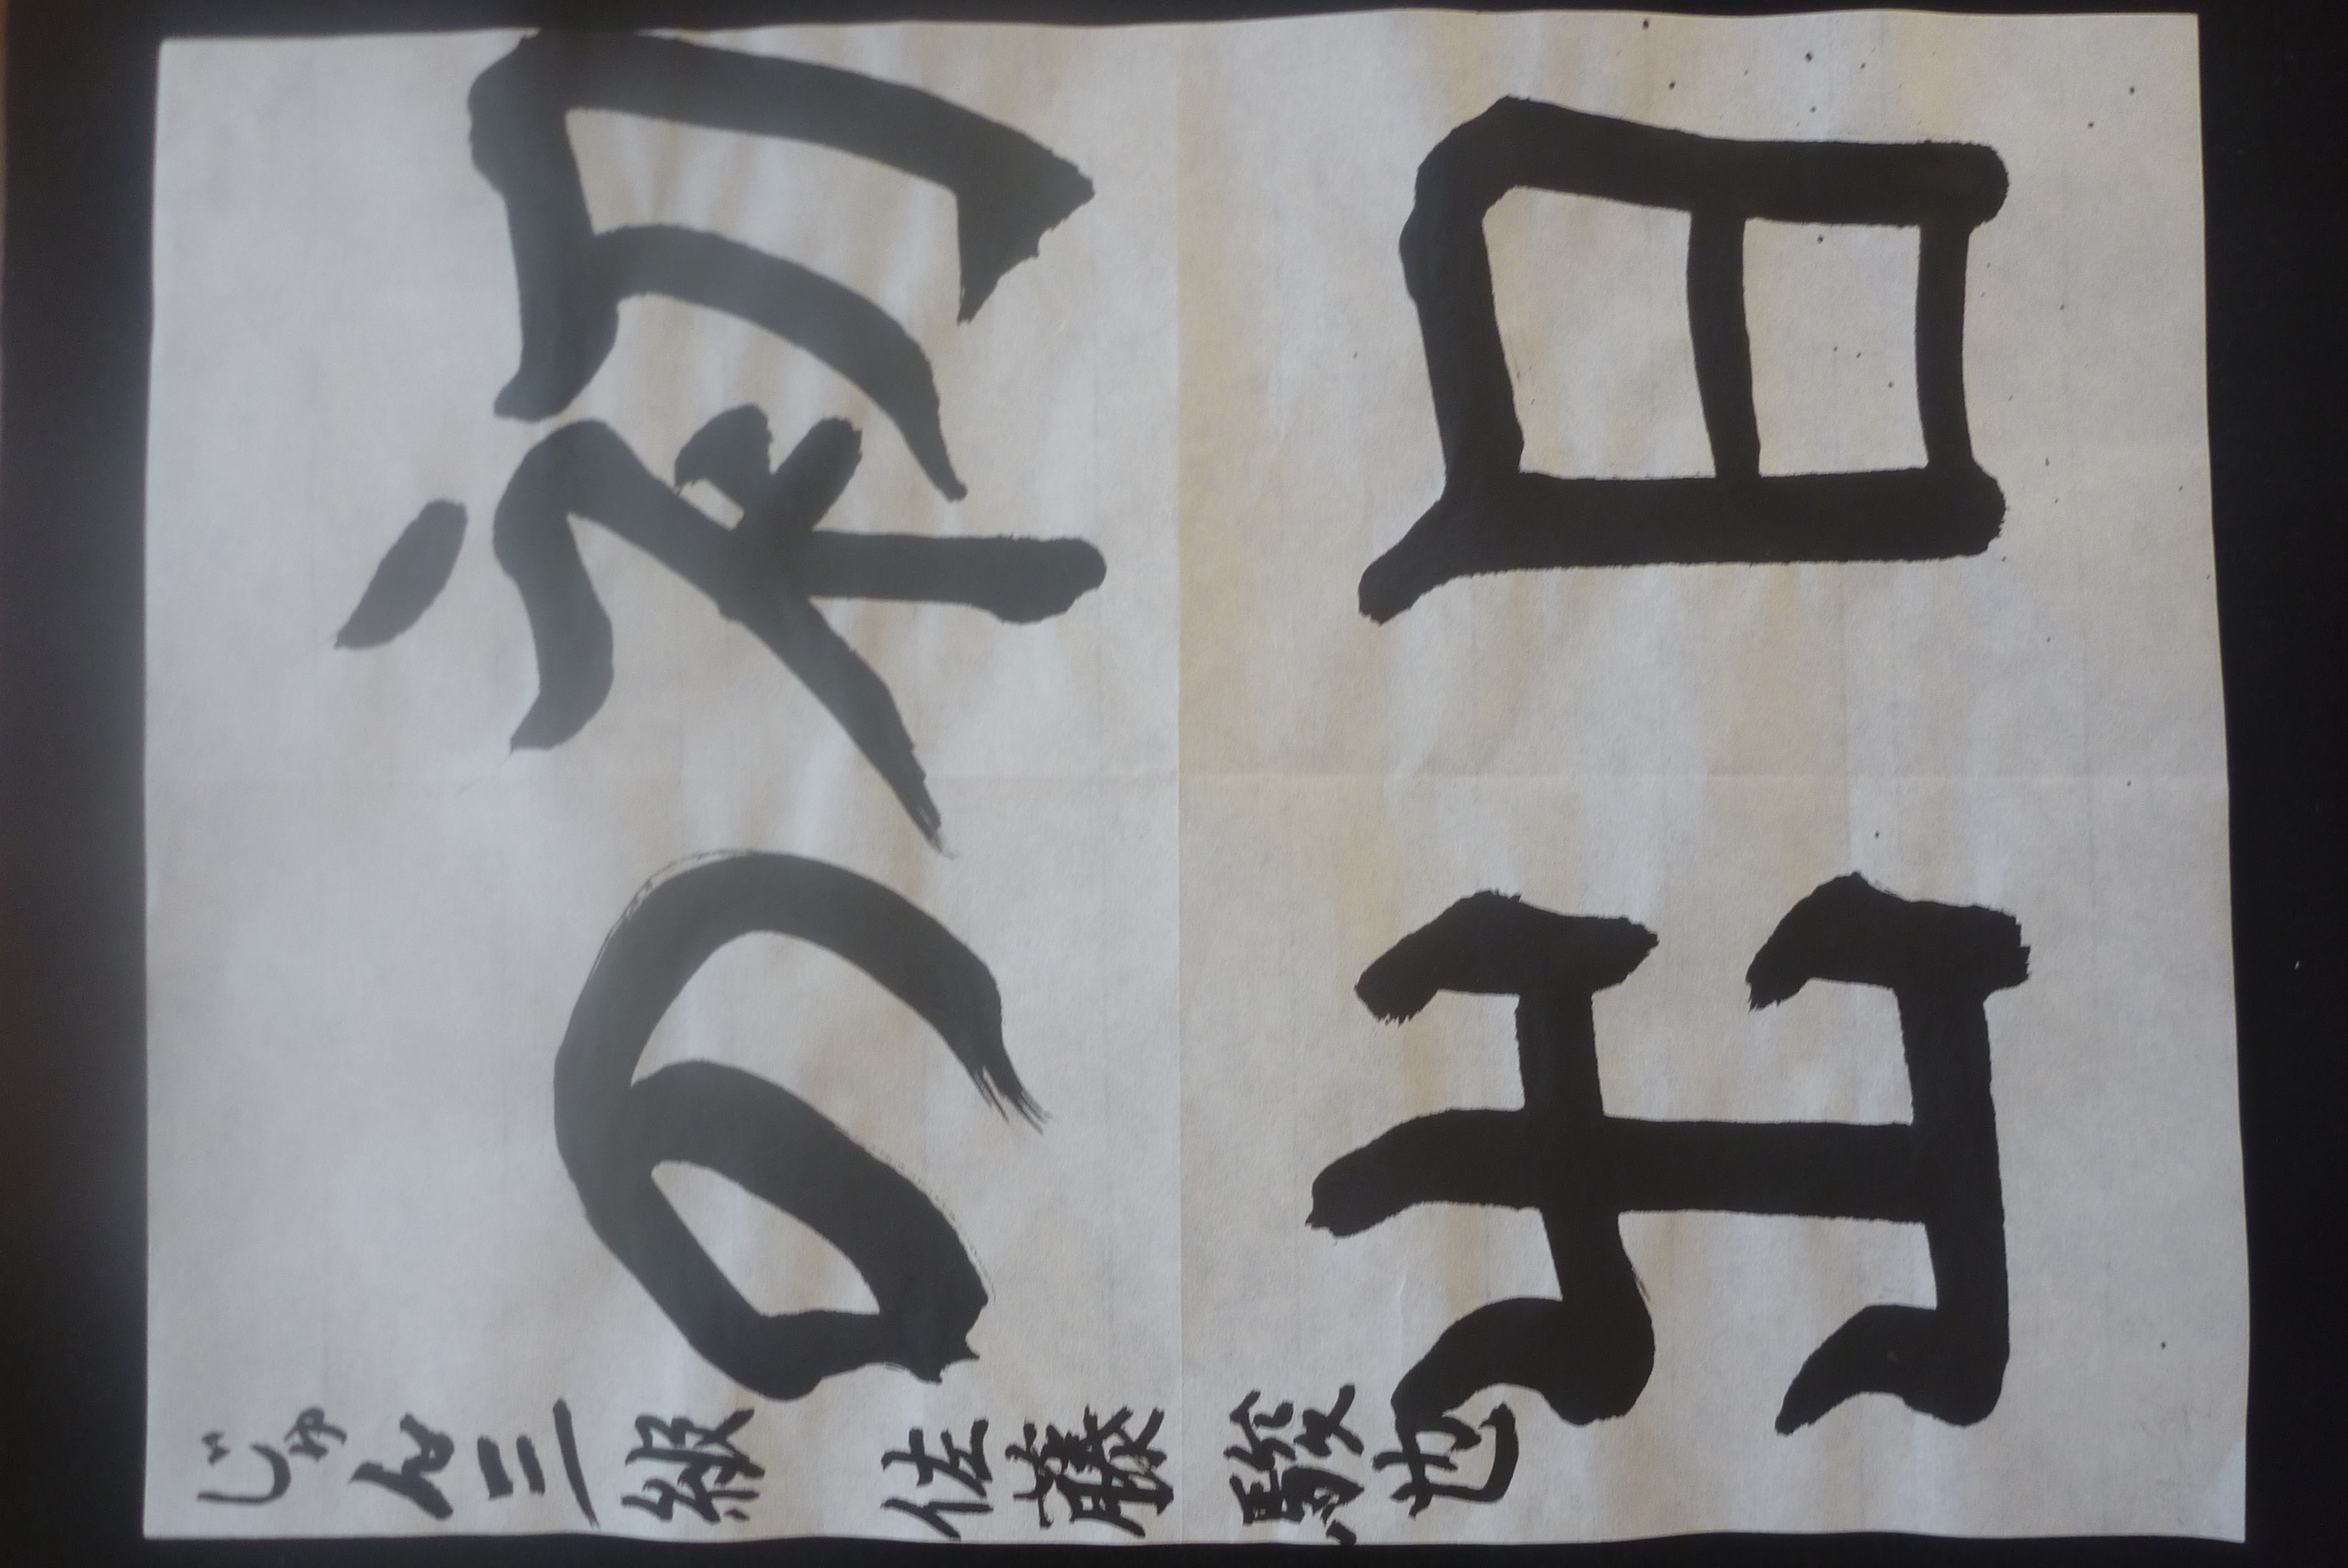 初日
の出
じゅん三級 佐藤駿也